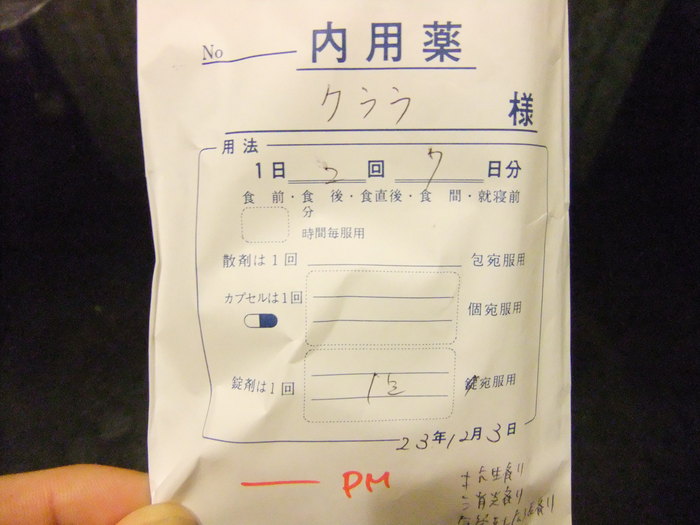 No 内用薬
クララ 様
用法
1日 2 回 7 日分
食 前・食 後・食直後・食 間・就寝前
分
時間毎服用
散剤は1回 包宛服用
カプセルは1回 個宛服用
錠剤は1回 1包 錠宛服用
23年12月3日
PM